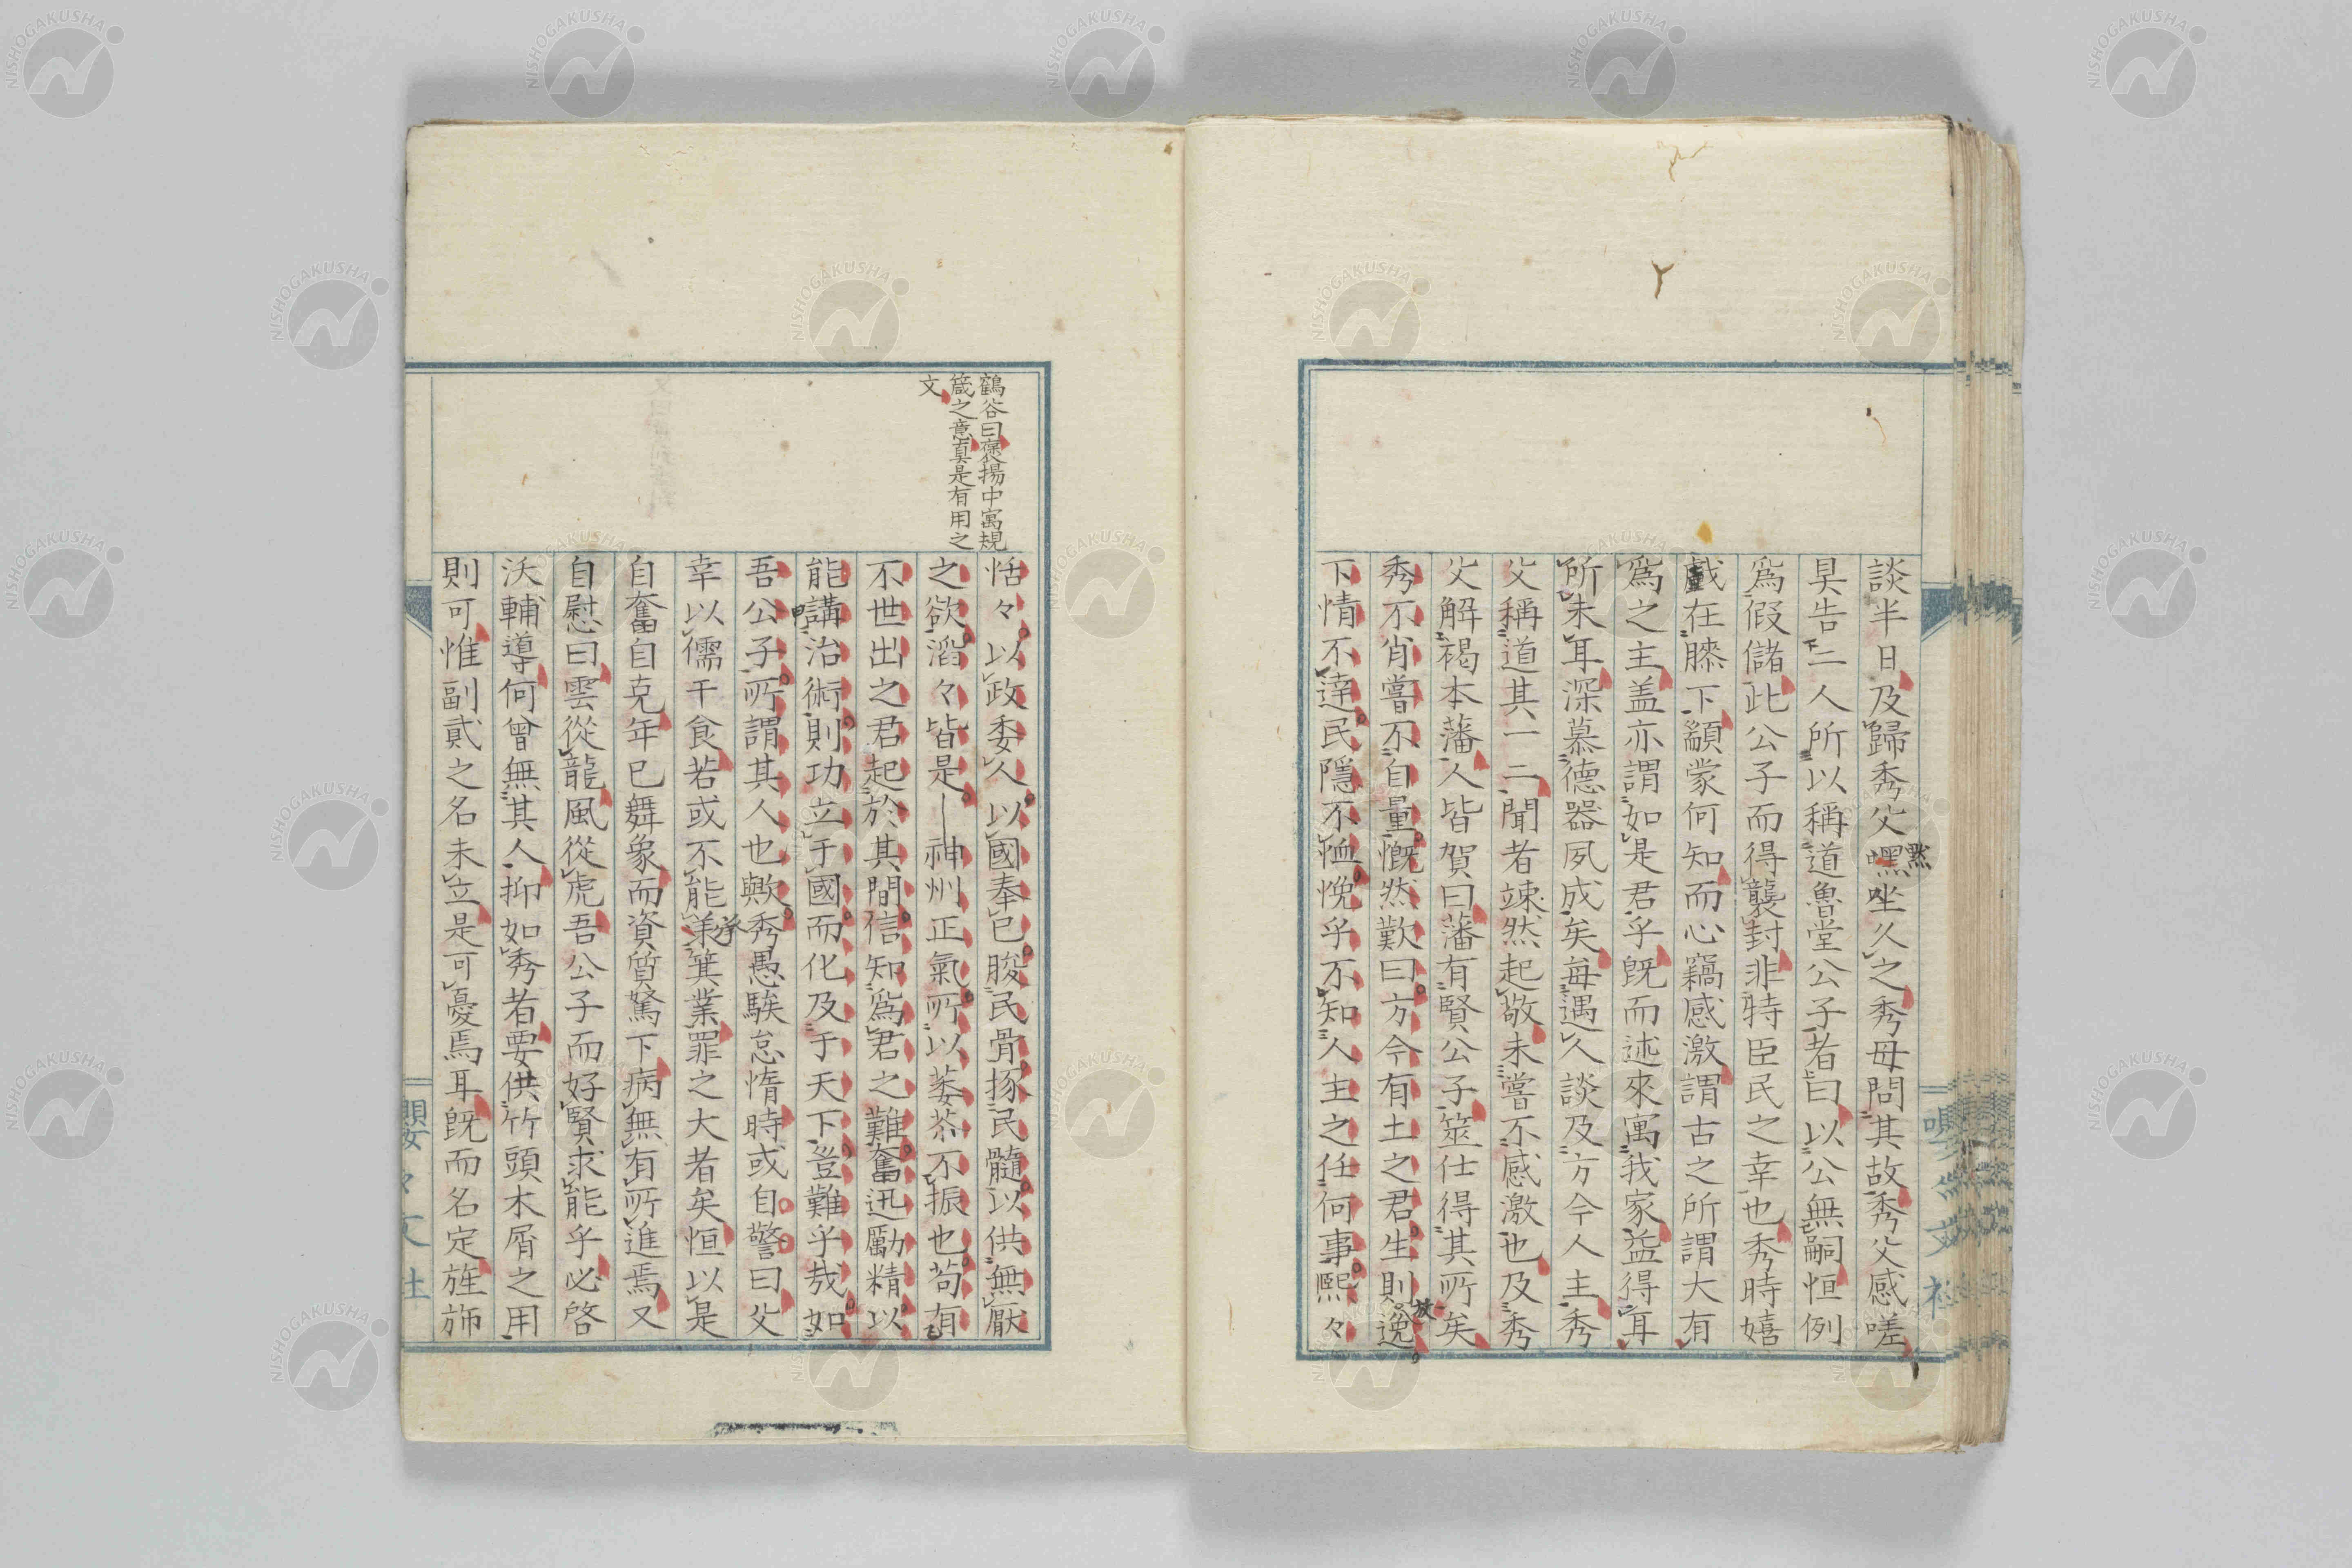 談半日及歸秀父嘿坐久之秀母問其故秀父感嗟
默
具告二人所以稱道魯堂公子者曰以公無嗣恒例
爲假儲此公子而得襲封非特臣民之幸也秀時嬉
戲在膝下顓蒙何知而心竊感激謂古之所謂大有
爲之主盖亦謂如是君乎既而述來寓我家益得耳
所未耳深慕德器夙成矣每遇久談及方今人主秀
父稱道其一二聞者竦然起敬未嘗不感激也及秀
父解褐本藩人皆賀曰藩有賢公子筮仕得其所矣
秀不肖嘗不自量慨然歎曰方今有土之君生則逸
放
下情不達民隱不恤悗乎不知人主之任何事熙々
鶴谷曰褒揚中寓規
箴之意真是有用之
文
恬々以政委人以國奉已朘民骨揼民髓以供無厭
之欲滔々皆是神州正氣所以萎苶不振也苟有
不世出之君起於其間信知爲君之難奮迅勵精以
能講治術則功立于國而化及于天下豈難乎哉如
吾公子所謂其人也歟秀愚騃怠惰時或自警曰父
幸以儒干食若或不能承箕業罪之大者矣恒以是
自奮自克年已舞象而資質駑下病無有所進焉又
自慰曰雲從龍風從虎吾公子而好賢求能乎必啓
沃輔導何曾無其人抑如秀者要供竹頭木屑之用
則可惟副貳之名未立是可憂焉耳既而名定旌斾
嚶々文社
嚶々文社
NISHOGAKUSHA